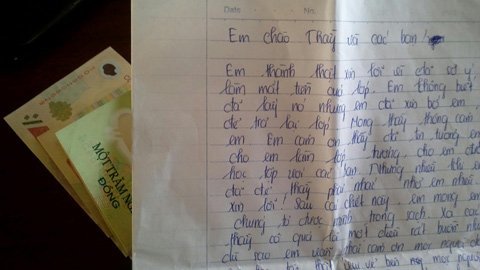 Date No.
Em chào Thầy và các bạn!
Em thành thật xin lỗi vì đã sơ ý
làm mất tiền quỹ lớp. Em không biết
đã lấy nó nhưng em đã xin bố em
để trả lại lớp! Mong thầy thông cảm
em. Em cảm ơn thầy đã tin tưởng em
cho em làm lớp trưởng, cho em
học lớp với các bạn. Nhưng nhiều khi em
đã để thầy phải nhắc nhở em nhiều
xin lỗi! Sau cái chết này em mong em
chứng tỏ được mình trong sạch. Xa các
thầy cô quả là một điều rất buồn
dù sao em vẫn cảm ơn mọi người
mọi người
MỘT TRĂM NG
ĐỒNG